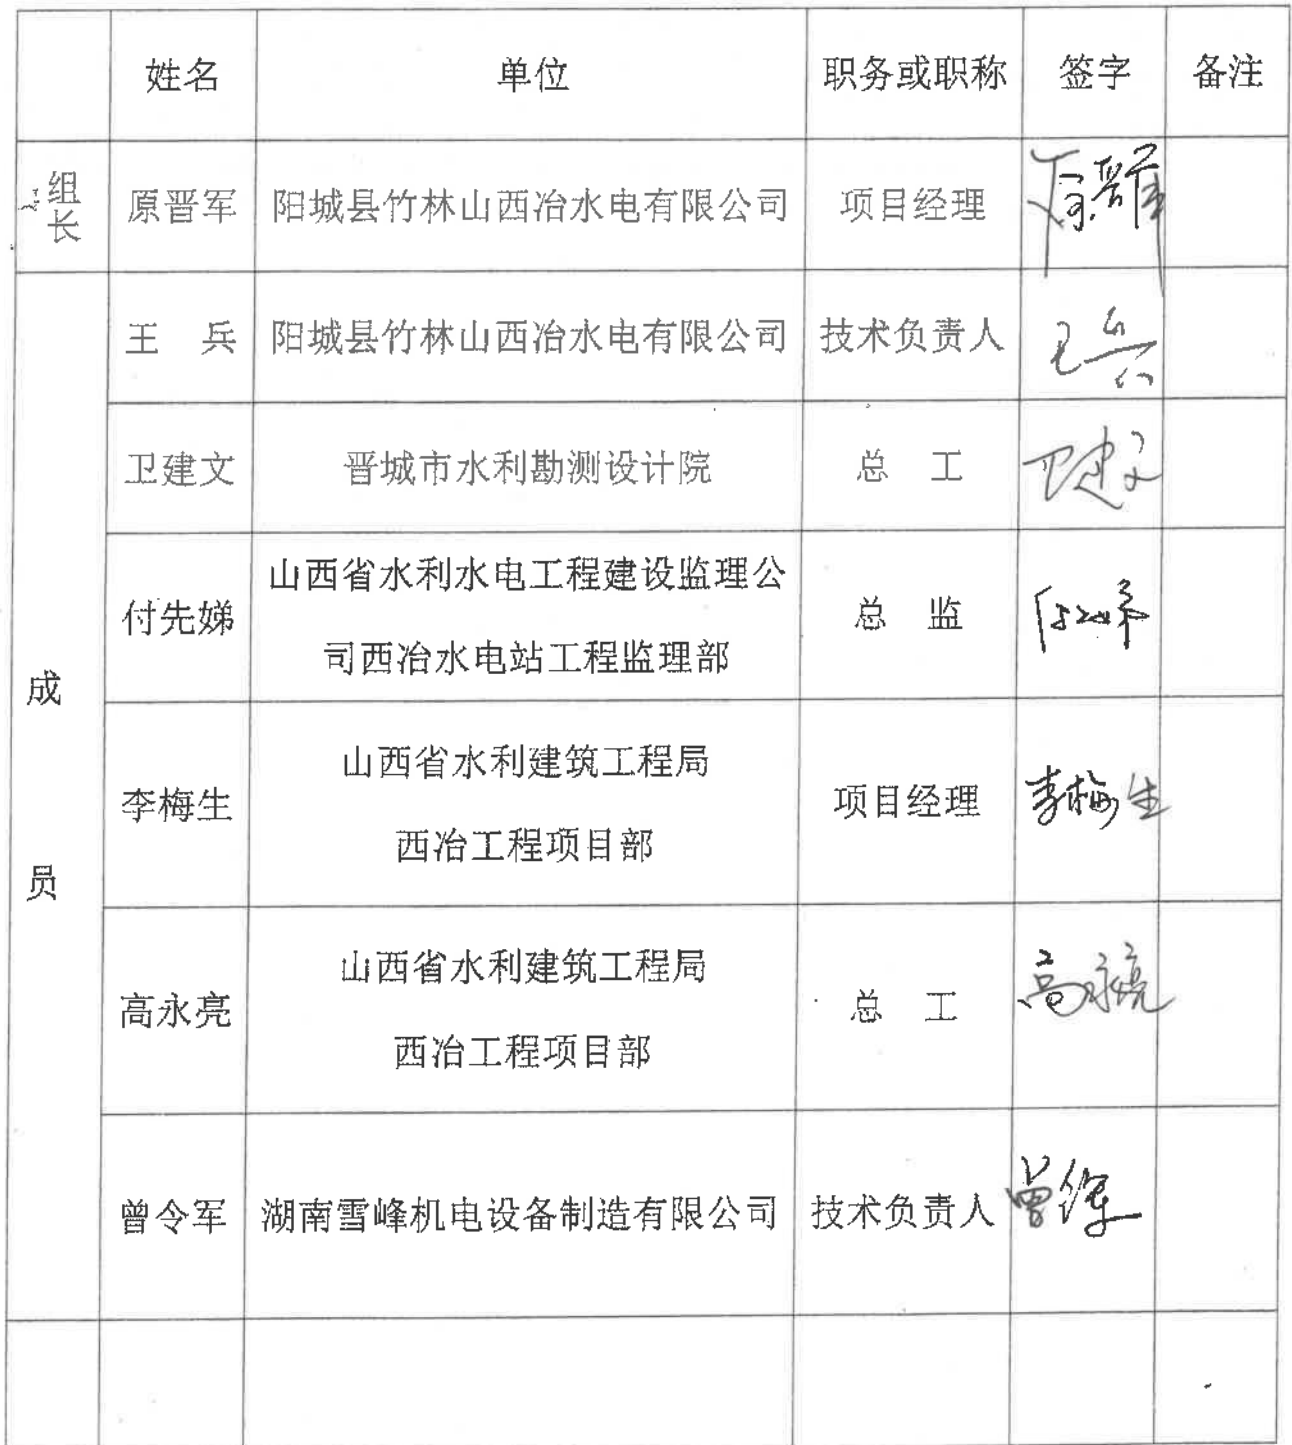 姓名 单位 职务或职称 签字 备注
组长 原晋军 阳城县竹林山西冶水电有限公司 项目经理 原晋军
成员
王 兵 阳城县竹林山西冶水电有限公司 技术负责人 王兵
卫建文 晋城市水利勘测设计院 总 工 卫建文
付先娣 山西省水利水电工程建设监理公
司西冶水电站工程监理部 总 监 付先娣
李梅生 山西省水利建筑工程局
西冶工程项目部 项目经理 李梅生
高永亮 山西省水利建筑工程局
西冶工程项目部 总 工 高永亮
曾令军 湖南雪峰机电设备制造有限公司 技术负责人 曾令军